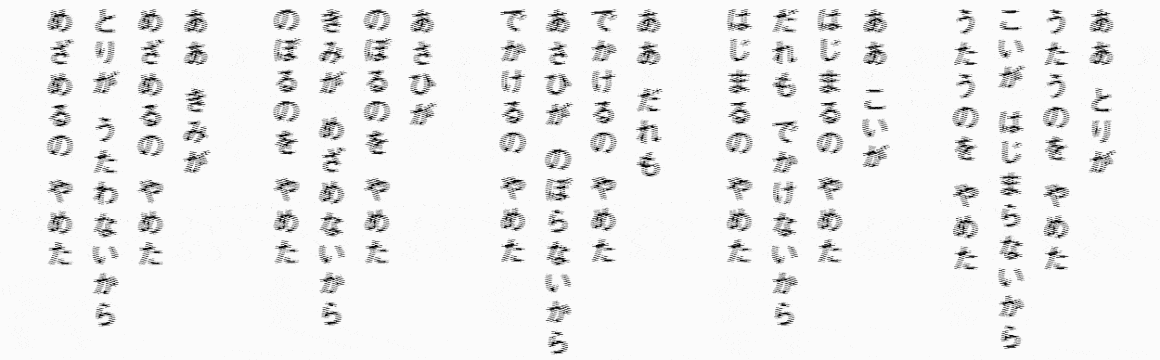 ああ とりが
うたうのを やめた
こいが はじまらないから
うたうのを やめた
ああ こいが
はじまるの やめた
だれも でかけないから
はじまるの やめた
ああ だれも
でかけるの やめた
あさひが のぼらないから
でかけるの やめた
あさひが
のぼるのを やめた
きみが めざめないから
のぼるのを やめた
ああ きみが
めざめるの やめた
とりが うたわないから
めざめるの やめた